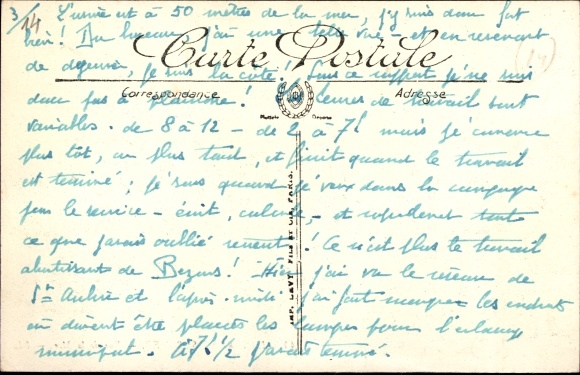 3/14
L'usine est à 50 mètres de la mer, j'y suis donc fort
bien! Du bureau j'ai une belle vue - et en revenant
de déjeuner, je suis la côte! Sous ce rapport je ne suis
Carte Postale
donc pas à plaindre! heures de travail sont
Correspondance
Adresse
variables. de 8 à 12 - de 2 à 7h mais je commence
plus tôt, ou plus tard, et finit quand le travail
est terminé; je sors quand je veux dans la campagne
pour le service - écrit, calcule, - et tout
ce que j'avais oublié revient! Ce n'est plus le travail
abrutissant de Bezons! Hier j'ai vu le réseau de
St Aubin et l'après-midi j'ai fait marquer les endroits
où doivent être placées les lampes pour l'éclairage
municipal. A 7h 1/2 j'avais terminé.
IMP. LEVY FILS ET Cie, PARIS.